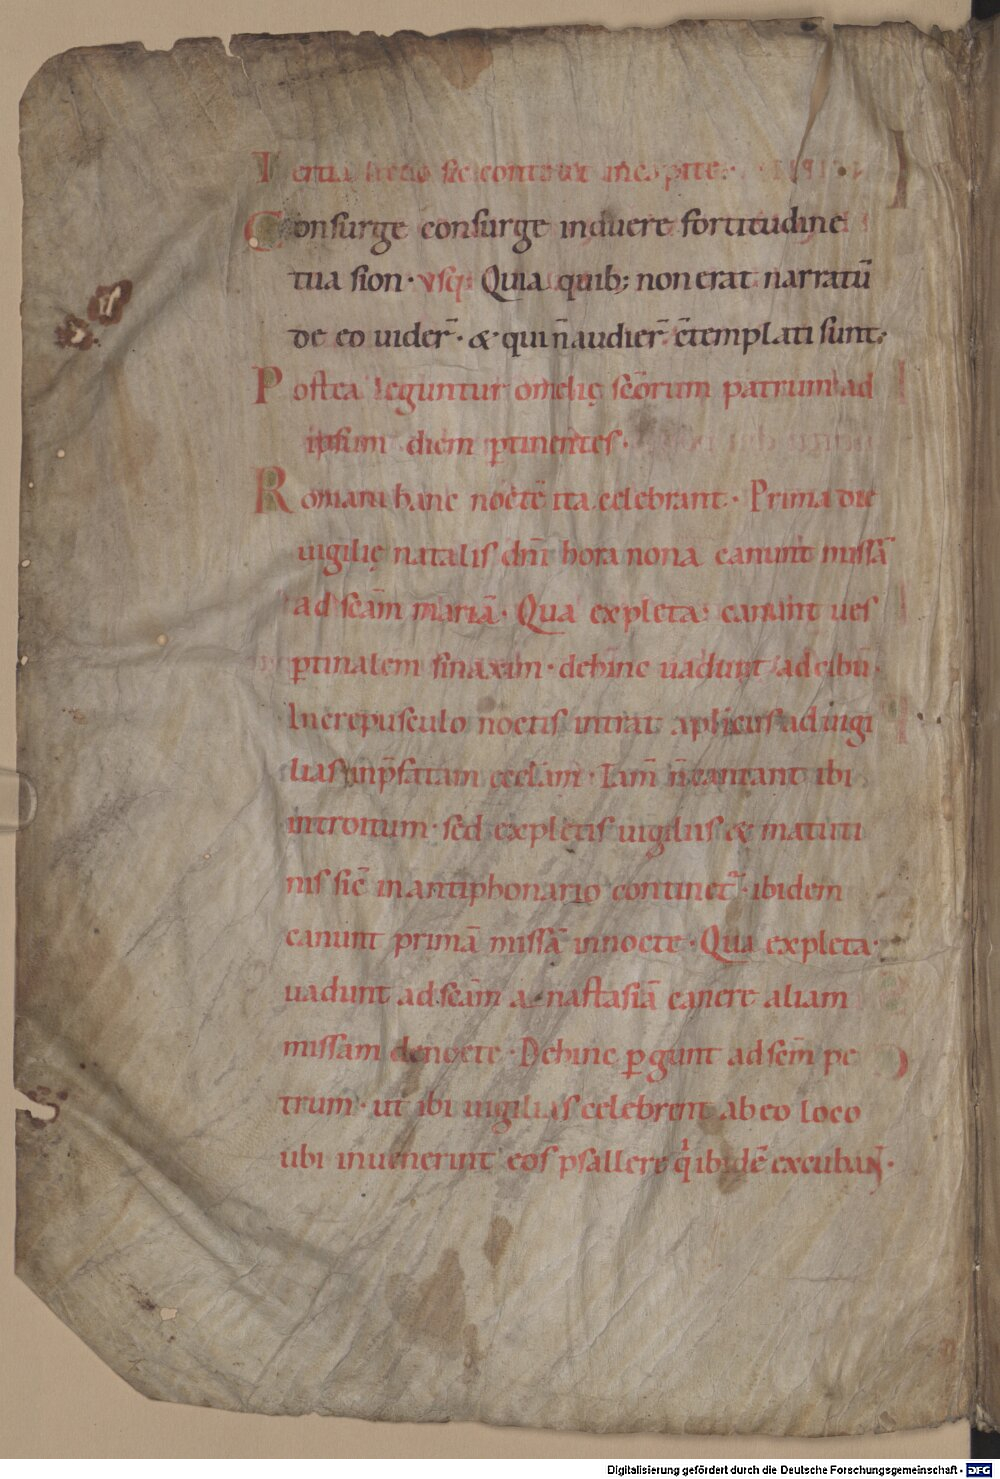 Tertia lectio sic continuat' incipite·
Consurge consurge induere fortitudine
tua sion· vsq; Quia quib; non erat narratū
de eo uider̄· & qui n̄ audier̄ c̄templati sunt·
Postea leguntur omelię sc̄orum patrum ad
ipsum diem ꝑtinentes·
Romani hanc noctē ita celebrant· Prima die
uigilię natalis dn̄i hora nona canunt missā
ad sc̄am mariā· Qua expleta· canunt ues
ꝑtinalem sinaxim· dehinc uadunt ad cibū·
In crepusculo noctis intrat ap̄licus ad uigi
lias in p̄fatam eccl̄am· Iam n̄ cantant ibi
introitum· sed expletis uigiliis & matuti
nis sic̄ in antiphonario continet̄· ibidem
canunt primā missā in nocte· Qua expleta·
uadunt ad sc̄am anastasiā canere aliam
missam de nocte· Dehinc ꝑgunt ad sc̄m pe
trum· ut ibi uigilias celebrent ab eo loco
ubi inuenerint eos psallere qⁱ ibidē excubant·
Digitalisierung gefördert durch die Deutsche Forschungsgemeinschaft - DFG